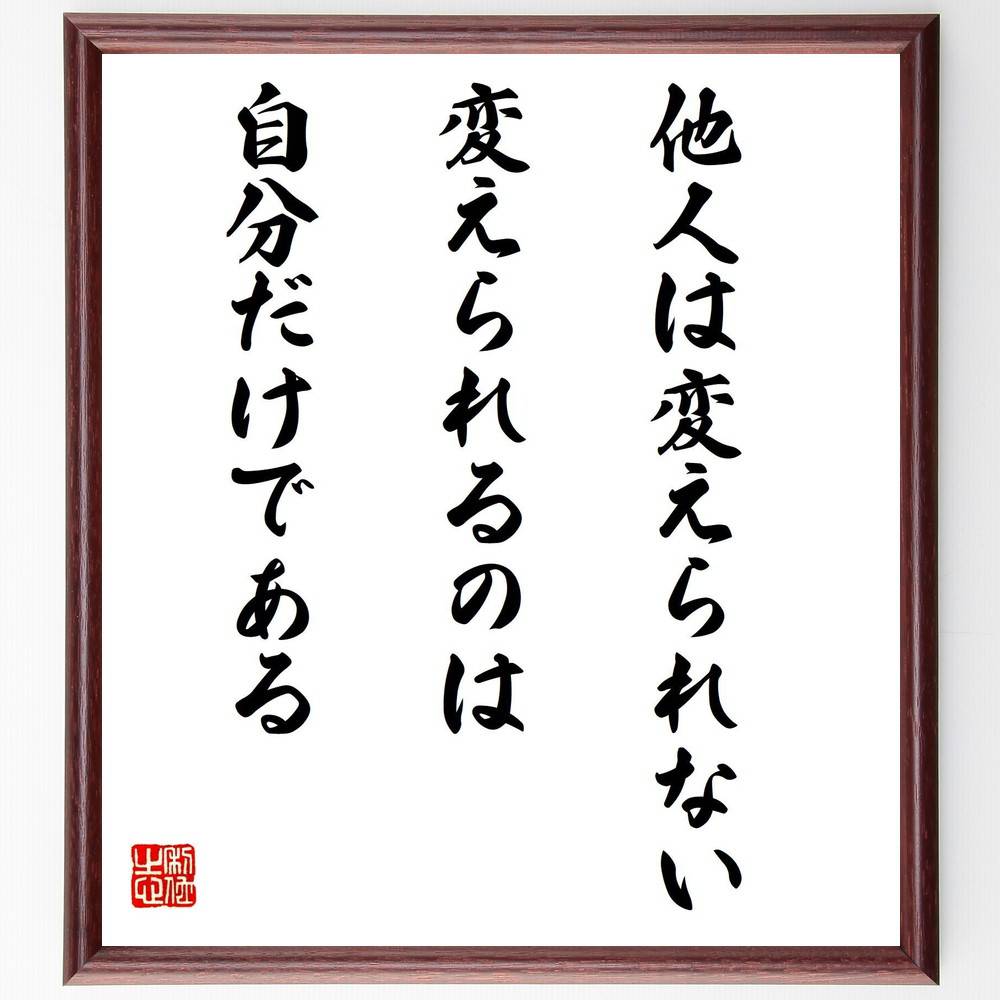 他人は変えられない
変えられるのは
自分だけである